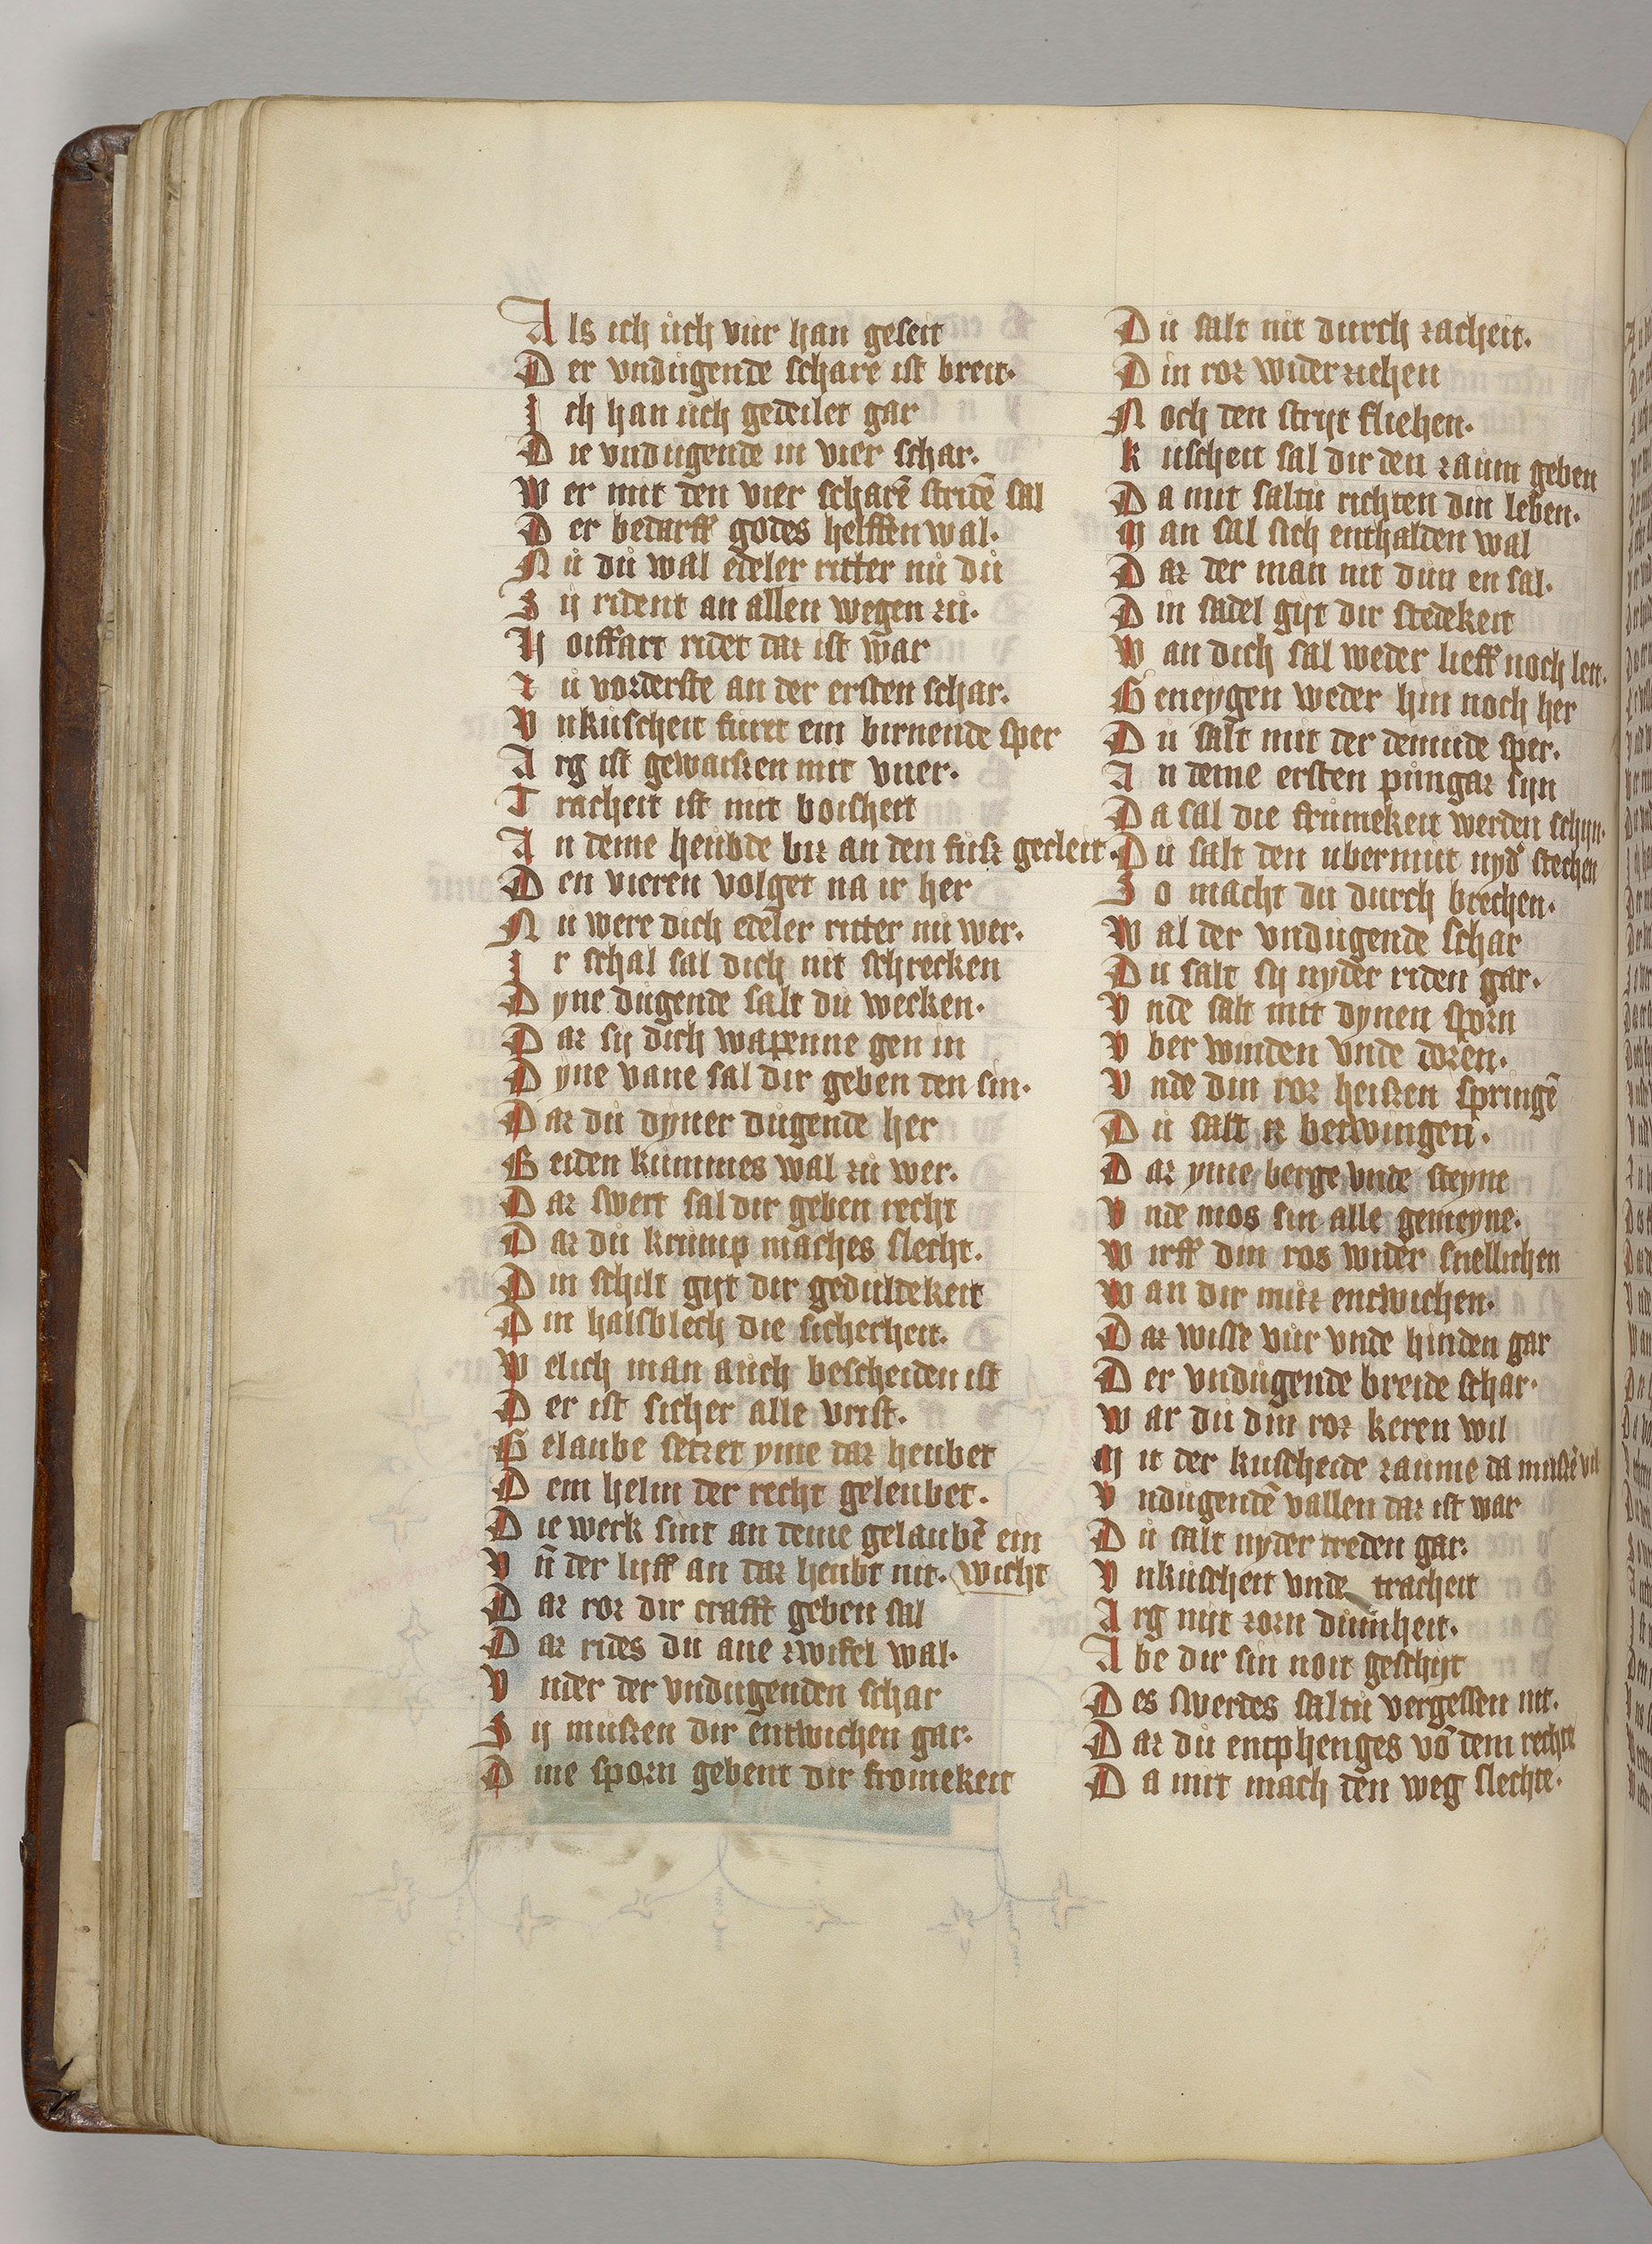 Als ich uͦch vur han geseit
Der vndugende schare ist breit·
Ich han uch gedeilet gar
Die vndugende in vier schar·
Wer mit den vier scharē stridē sal
Der bedarff godes helffen wal·
Nu du wal edeler ritter nu du
Sy rident an allen wegen zu·
Hoiffart ridet daz ist war
Zu vorderste an der ersten schar·
Vnkuscheit furet ein birnende sper
Arg ist gewaissen mit vuer·
Tracheit ist mit boisheit
An deme heubde biz an den fusz gecleit·
Den vieren volget na ir her
Nu were dich edeler ritter nu wer·
Ir schal sal dich nit schrecken
Dyne dugende salt du wecken·
Daz sy dich wapenne gen in
Dyne vane sal dir geben den sin·
Daz du dyner dugende her
Beiden kunnnes wal zu wer·
Daz swert sal dir geben recht
Daz du krump maches slecht·
Din schilt gyt dir gedultekeit
Din halsblech die sicherheit·
Welich man auch bescheiden ist
Der ist sicher alle vrist·
Gelaube setzet yme daz heubet
Dem helm der recht geleubet·
Die werk sint an deme gelaubē ein
Vn̄ der lyff an daz heubt nit· wicht
Daz roz dir crafft geben sal
Daz rides du ane zwifel wal·
Vnder der vndugenden schar
Sy muszen dir entwichen gar·
Dine sporn gebent dir fromekeit
Du salt nit durch tracheit·
Din roz wider ziehen
Noch den strijt fliehen·
Kuscheit sal dir den zaum geben
Da mit saltu richten din leben·
Man sal sich enthalden wal
Daz der man nit dun en sal·
Din sadel gyt dir stedekeit
Wan dich sal weder lieff noch leit·
Geneygen weder hin noch her
Du salt mit der demude sper·
An deme ersten pungaz sijn
Da sal die frumekeit werden schijn·
Du salt den ubermut nyd' stechen
So macht du durch brechen·
Wal der vndugende schar
Du salt sy nyder riden gar·
Vnde salt mit dynen sporn
Vber winden vnde doren·
Vnde din roz heiszen springē
Du salt iz betwingen·
Daz yme berge vnde steyne
Vnde mos sin alle gemeyne·
Wirff din ros wider snellichen
Wan dir muz entwichen·
Daz wisse vur vnde hinden gar
Der vndugende breide schar·
War du din roz keren wil
Mit der kuscheide zaume da muszē vil
Vndugendē vallen daz ist war
Du salt nyder treden gar·
Vnkuscheit vnde tracheit
Arg nyt zorn dumheit·
Abe dir sin noit geschijt
Des swerdes saltu vergessen nit·
Daz du entphenges vō dem rechte
Da mit mach den weg slechte·